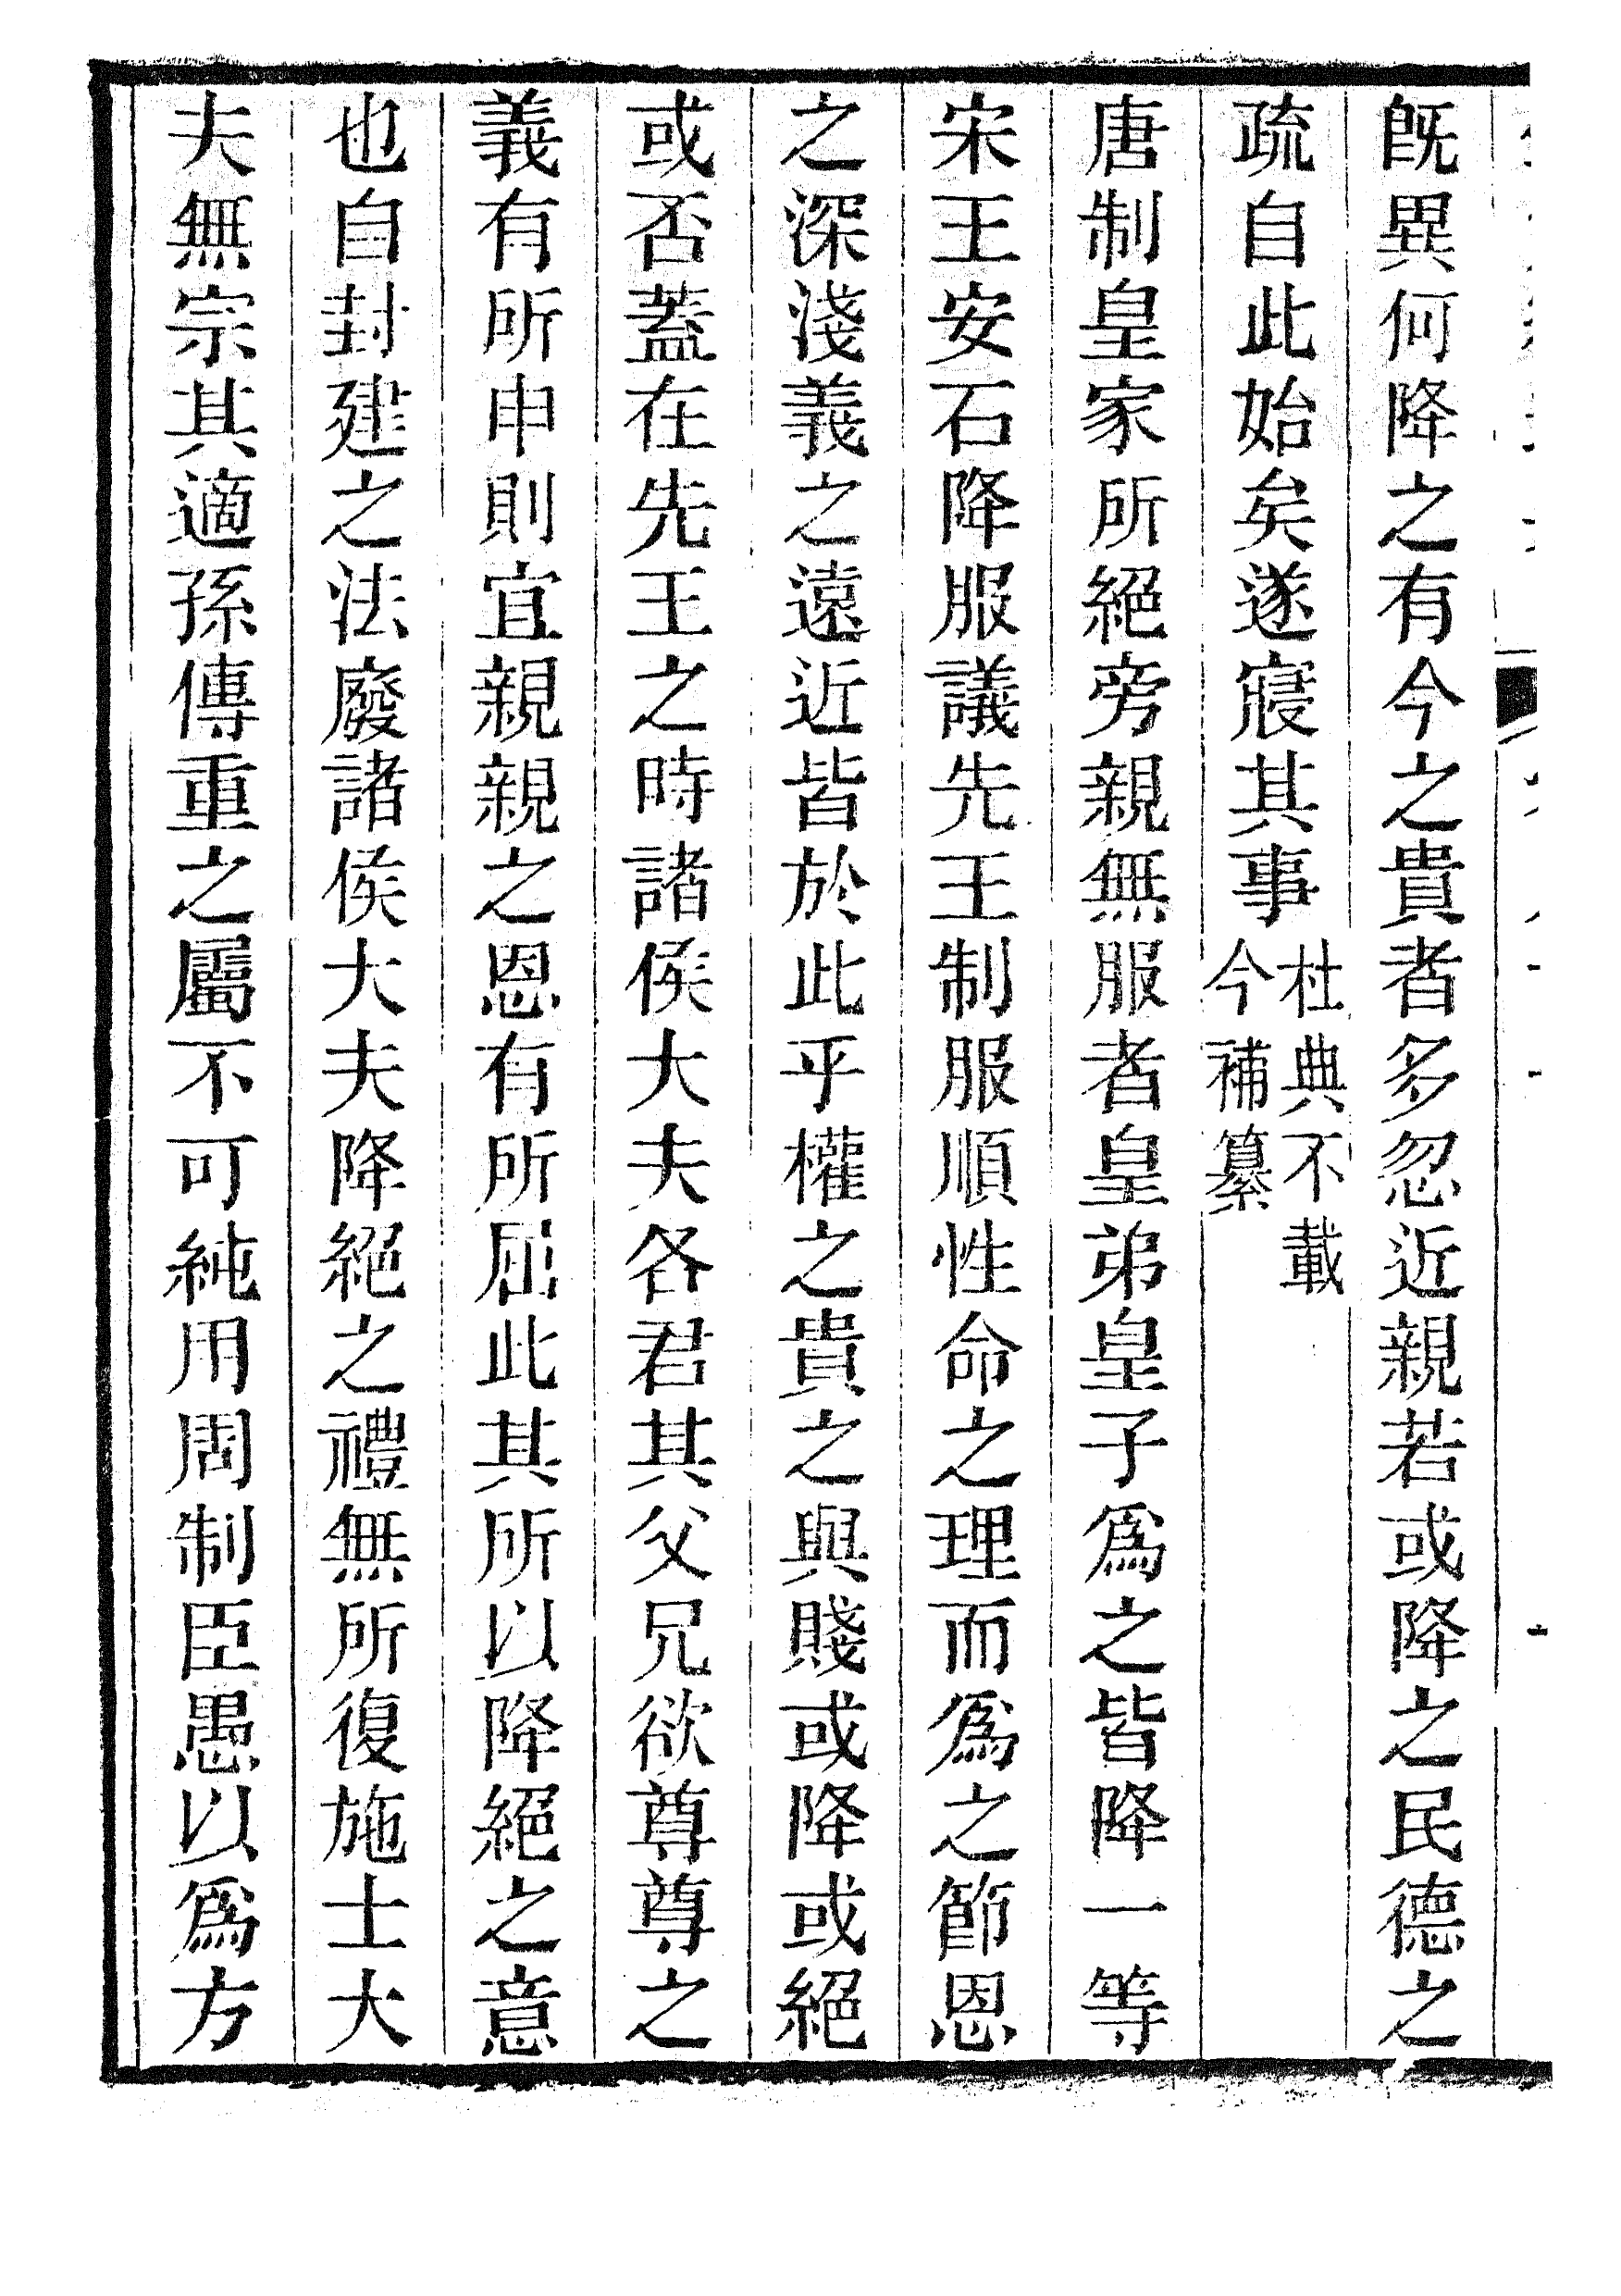 既異何降之有今之貴者多忽近親若或降之民德之
疏自此始矣遂寢其事杜典不載今補纂
唐制皇家所絕旁親無服者皇弟皇子爲之皆降一等
宋王安石降服議先王制服順性命之理而爲之節恩
之深淺義之遠近皆於此乎權之貴之與賤或降或絕
或否蓋在先王之時諸侯大夫各君其父兄欲尊尊之
義有所申則宜親親之恩有所屈此其所以降絕之意
也自封建之法廢諸侯大夫降絕之禮無所復施士大
夫無宗其適孫傳重之屬不可純用周制臣愚以爲方